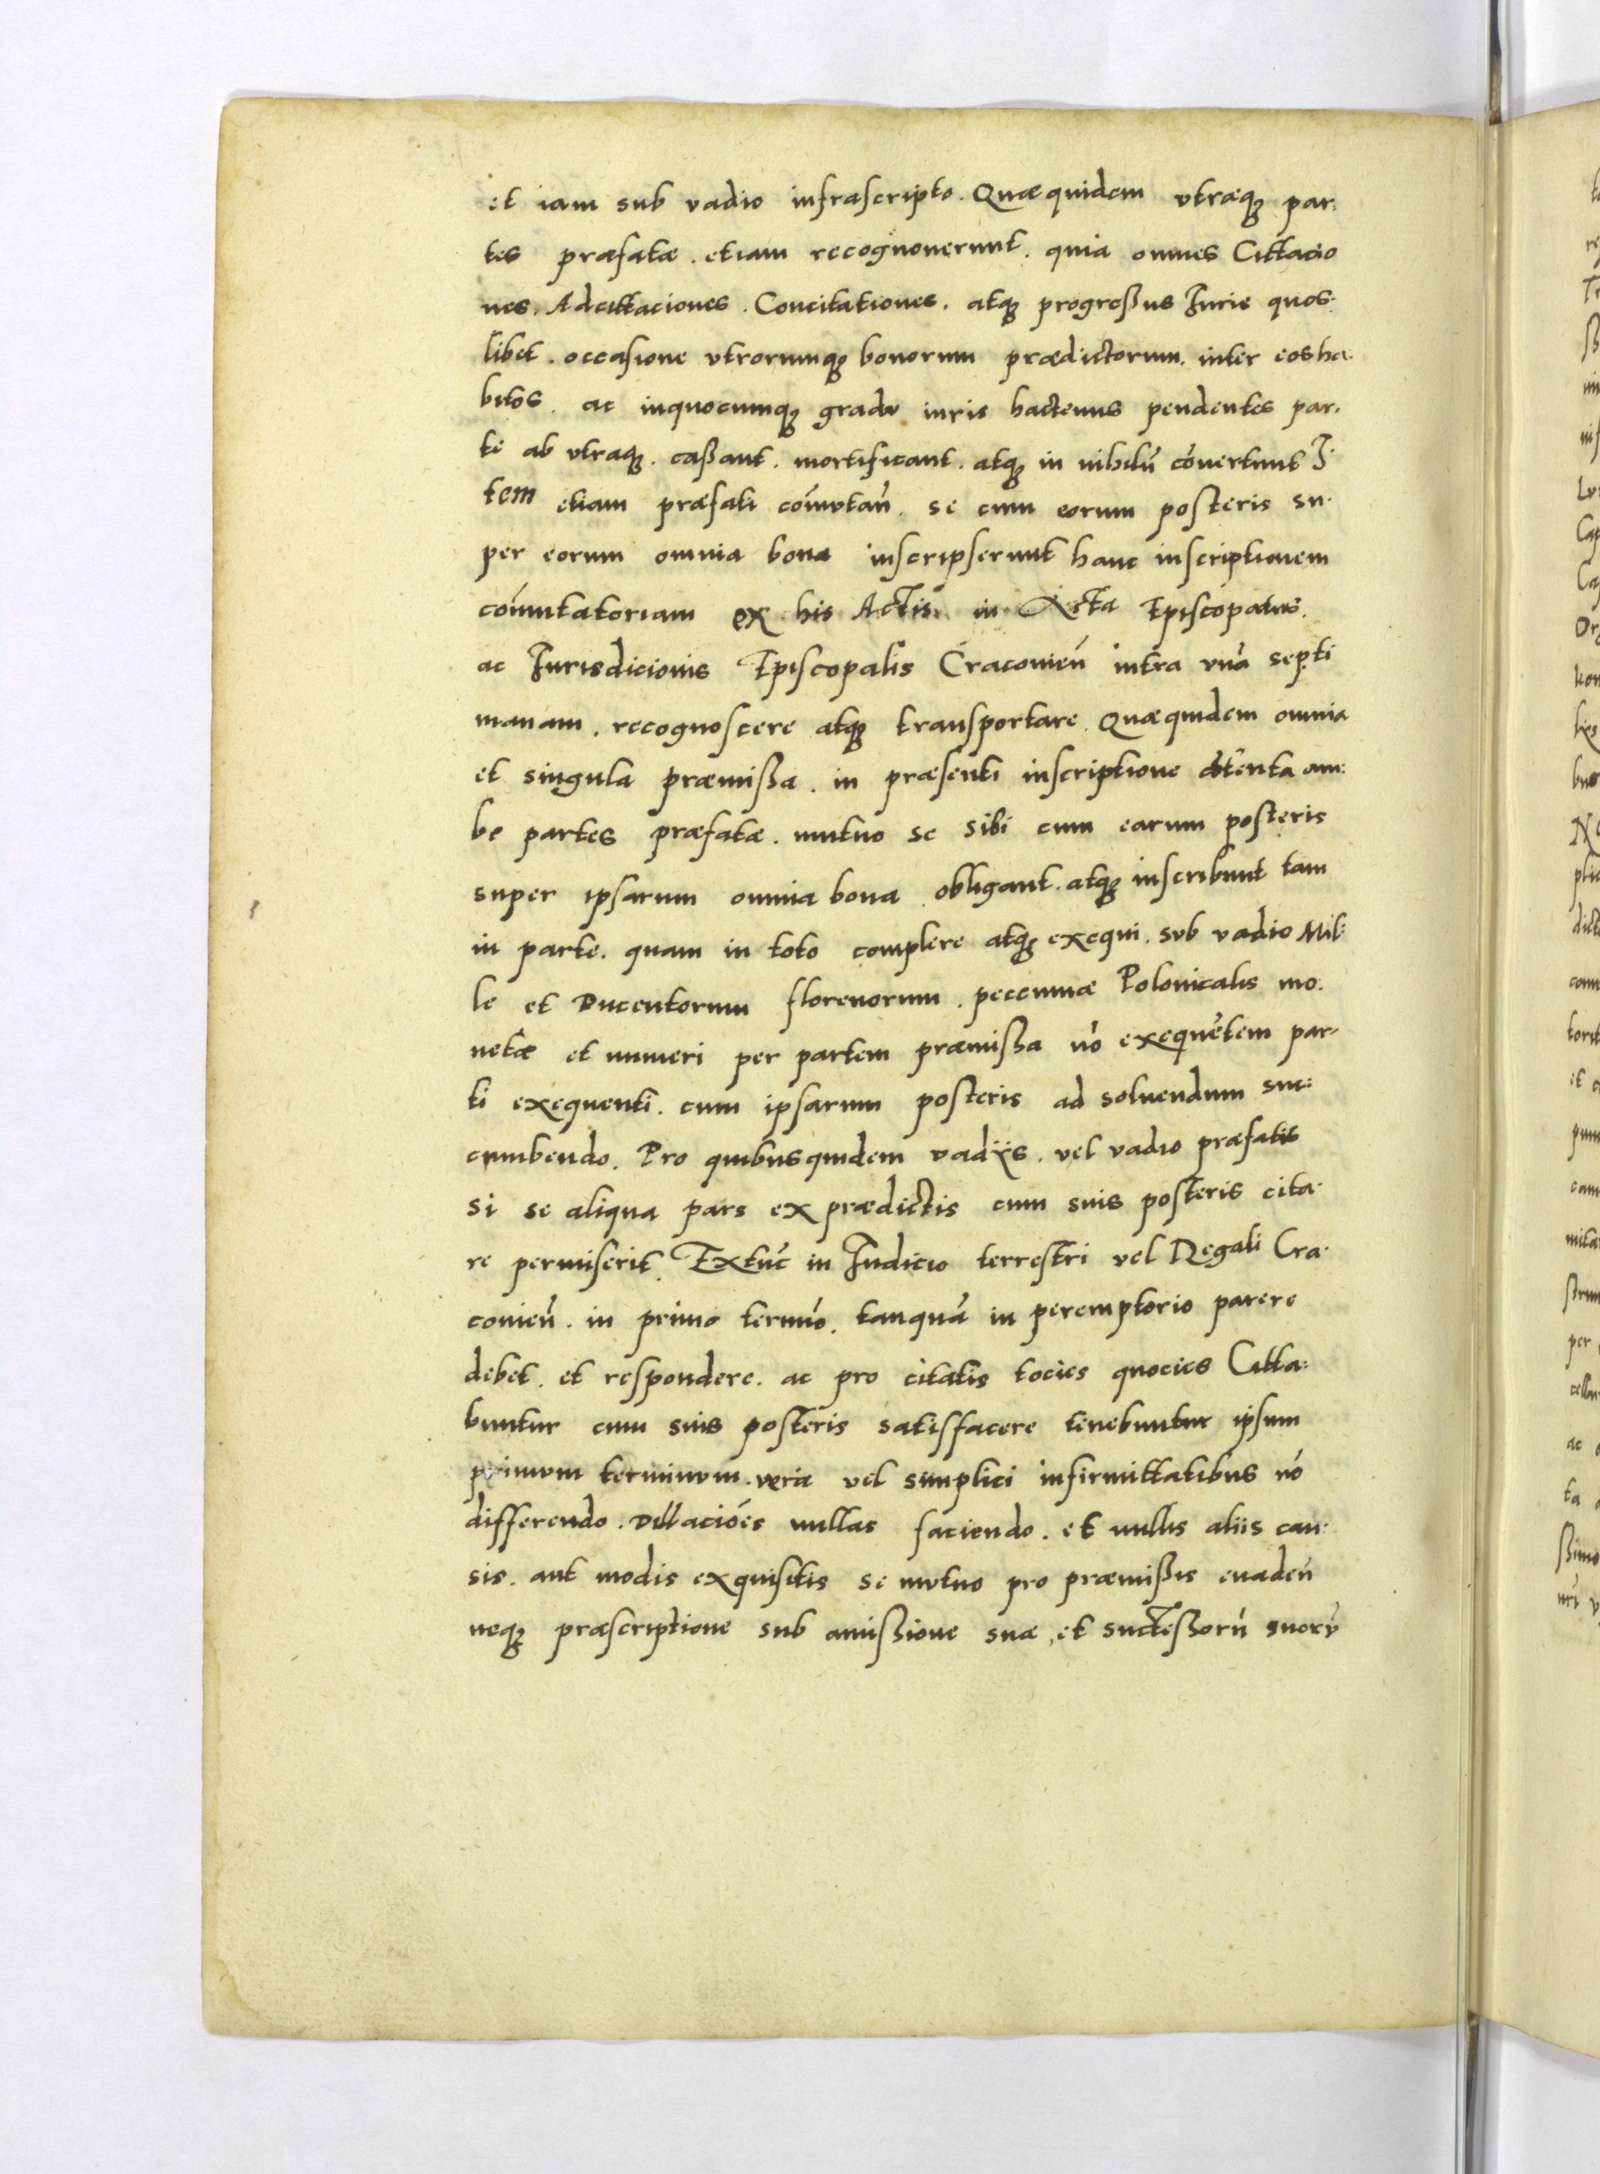 et iam sub vadio infrascripto. Quæquidem vtræq₃ par:
tes præfatæ. etiam recognouerunt. quia omnes Cittacio
nes. Adcittaciones. Concitationes. atq₃ progreßus Iuris quos:
libet. occasione vtrorumq₃ bonorum prædictorum. inter eos ha:
bitos. ac inquocumq₃ gradu iuris hactenus pendentes par:
te ab vtraq₃. caßant. mortificant. atq₃ in nihilū cōuertunt I:
tem etiam præfati cōmutan̄. se cum eorum posteris su:
per eorum omnia bona inscripserunt hanc inscriptionem
cōmutatoriam ex his Actis in Acta Episcopatus.
ac Iurisdicionis Episcopalis Cracouien̄ intra vnā septi
manam. recognoscere atq₃ transportare. Quæquidem omnia
et singula præmißa. in præsenti inscriptione cōtenta am:
be partes præfatæ. mutuo se sibi cum earum posteris
super ipsarum omnia bona obligant. atq₃ inscribunt tam
in parte. quam in toto complere atq₃ exequi. sub vadio Mil:
le et Ducentorum florenorum. peccuniæ Polonicalis mo:
netæ et numeri per partem præmißa nō exequētem par:
ti exequenti. cum ipsarum posteris ad soluendum suc:
cumbendo. Pro quibusquidem vadÿs. vel vadio præfatis
si se aliqua pars ex prædictis cum suis posteris cita:
re permiserit. Extūc in Iudicio terrestri vel Regali Cra:
couien̄. in primo termīo. tanquā in peremptorio parere
debet. et respondere. ac pro citatis tocies quocies Citta:
buntur cum suis posteris satisfacere tenebuntur ipsum
primum terminum. vera vel simplici infirmittatibus nō
differendo. Dillaciōes nullas faciendo. et nullis aliis cau:
sis. aut modis exquisitis se mutuo pro præmißis euaden̄
neq₃ præscriptione sub amißione suæ, et succeßorū suorū